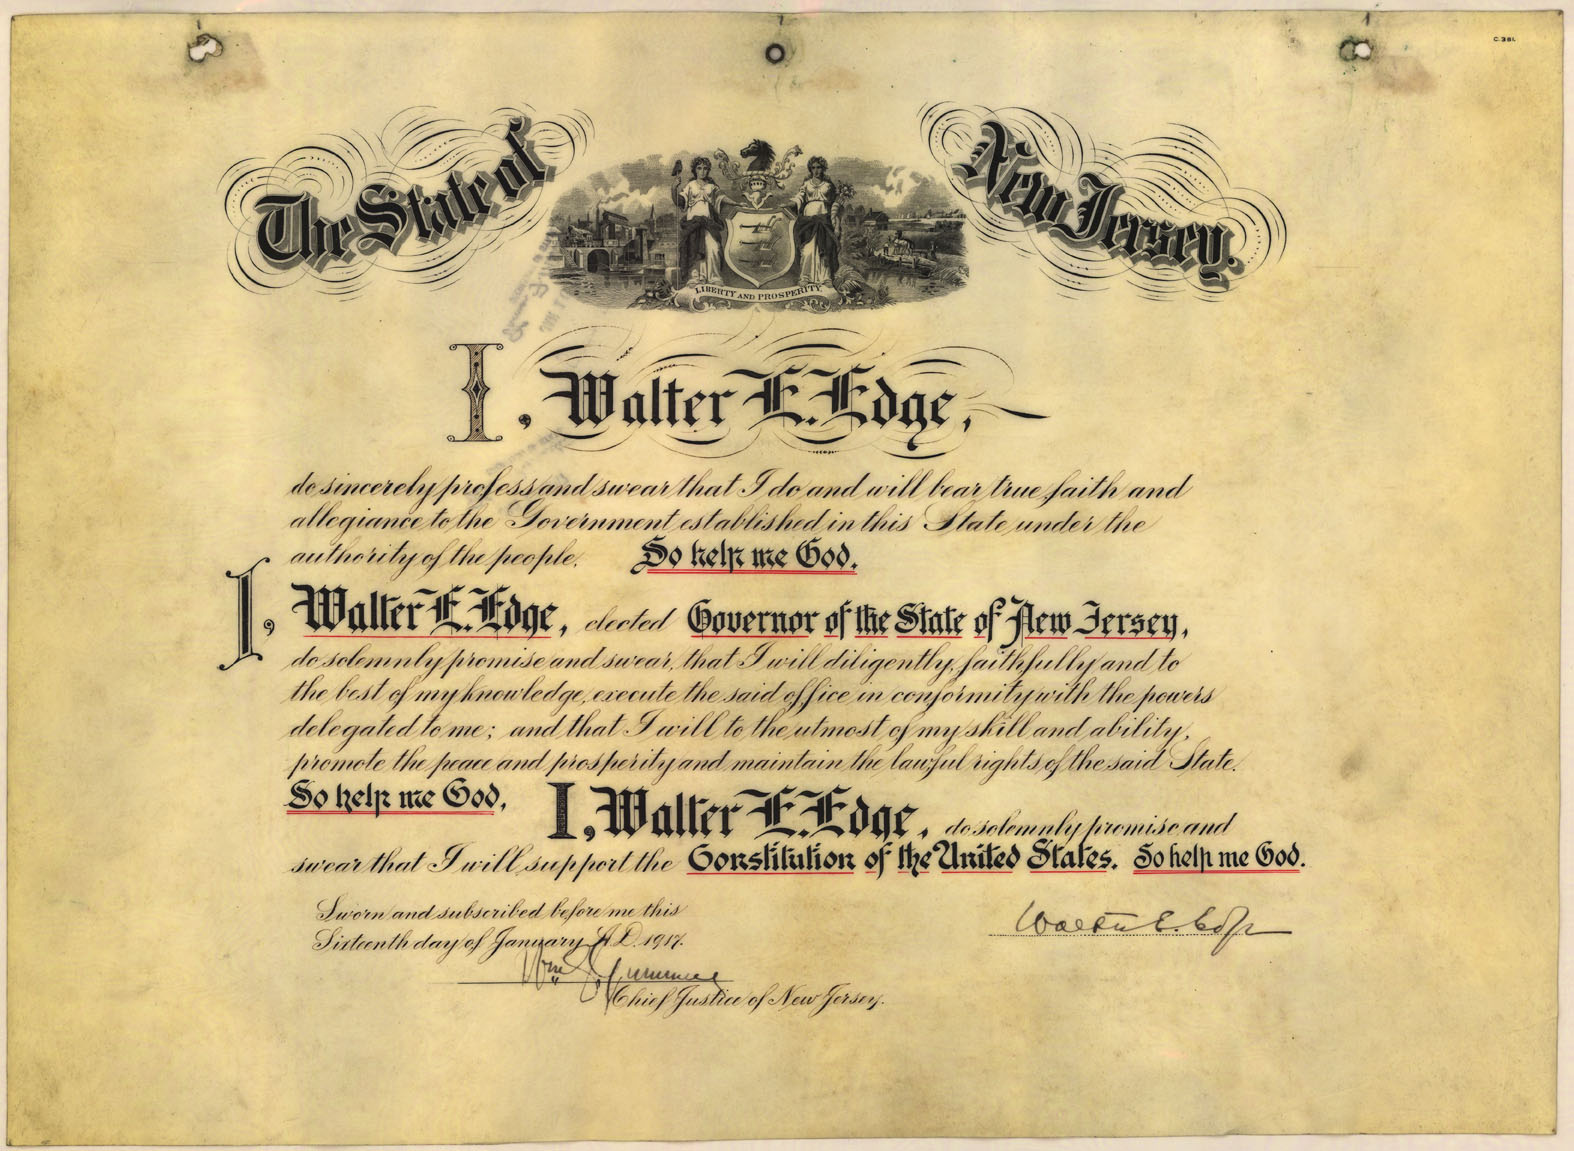 C. 381.
The State of New Jersey.
LIBERTY AND PROSPERITY.
I, Walter E. Edge,
do sincerely profess and swear that I do and will bear true faith and
allegiance to the Government established in this State under the
authority of the people. So help me God.
I, Walter E. Edge, elected Governor of the State of New Jersey,
do solemnly promise and swear, that I will diligently, faithfully and to
the best of my knowledge, execute the said office in conformity with the powers
delegated to me; and that I will to the utmost of my skill and ability,
promote the peace and prosperity and maintain the lawful rights of the said State.
So help me God, I, Walter E. Edge, do solemnly promise and
swear that I will support the Constitution of the United States. So help me God.
Sworn and subscribed before me this
Sixteenth day of January A.D. 1917.
Walter E. Edge
Wm S. Gummere
Chief Justice of New Jersey.